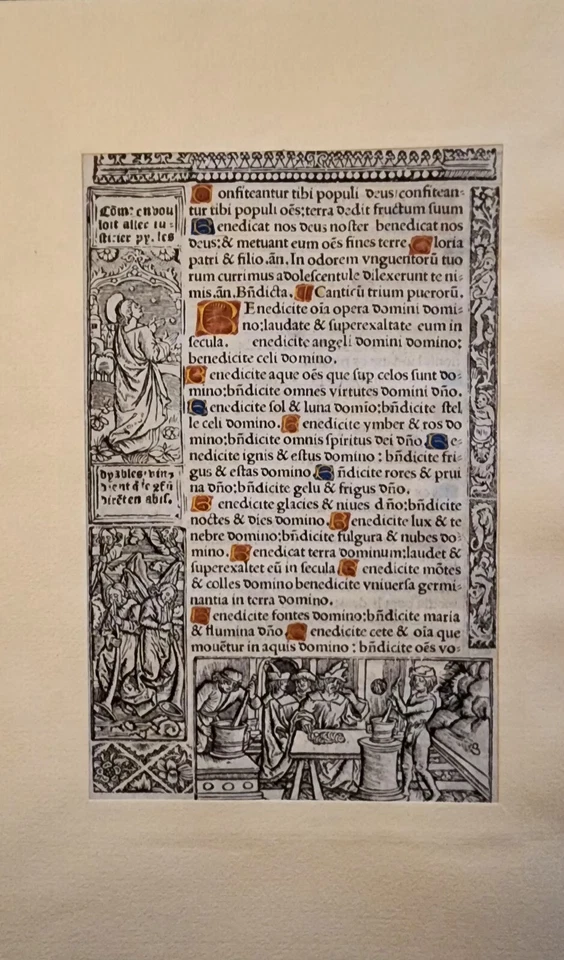 Cōm: en vou
loit aller iu-
sticier py. les
dyables vin-
drent
Confiteantur tibi populi deus: confitean-
tur tibi populi oēs: terra dedit fructum suum
Benedicat nos deus noster benedicat nos
deus: & metuant eum oēs fines terre. Gloria
patri & filio .ān. In odorem vnguentorū tuo
rum currimus adolescentule dilexerunt te ni-
mis. ān. Bn̄dicta. Canticū trium puerorū.
BEnedicite oīa opera domini domi-
no: laudate & superexaltate eum in
secula. enedicite angeli domini domino:
benedicite celi domino.
Benedicite aque oēs que sup celos sunt do-
mino: bn̄dicite omnes virtutes domini dn̄o.
Benedicite sol & luna domīo: bn̄dicite stel
le celi domino. Benedicite ymber & ros do
mino: bn̄dicite omnis spiritus dei dn̄o Be-
nedicite ignis & estus domino : bn̄dicite fri-
gus & estas domino. Bn̄dicite rores & prui
na dn̄o: bn̄dicite gelu & frigus dn̄o.
Benedicite glacies & niues dn̄o: bn̄dicite
noctes & dies domino. Benedicite lux & te
nebre domino: bn̄dicite fulgura & nubes do-
mino. Benedicat terra dominum: laudet &
superexaltet eū in secula Benedicite mōtes
& colles domino benedicite vniuersa germi-
nantia in terra domino.
Benedicite fontes domino: bn̄dicite maria
& flumina dn̄o. Benedicite cete & oīa que
mouētur in aquis domino : bn̄dicite oēs vo-